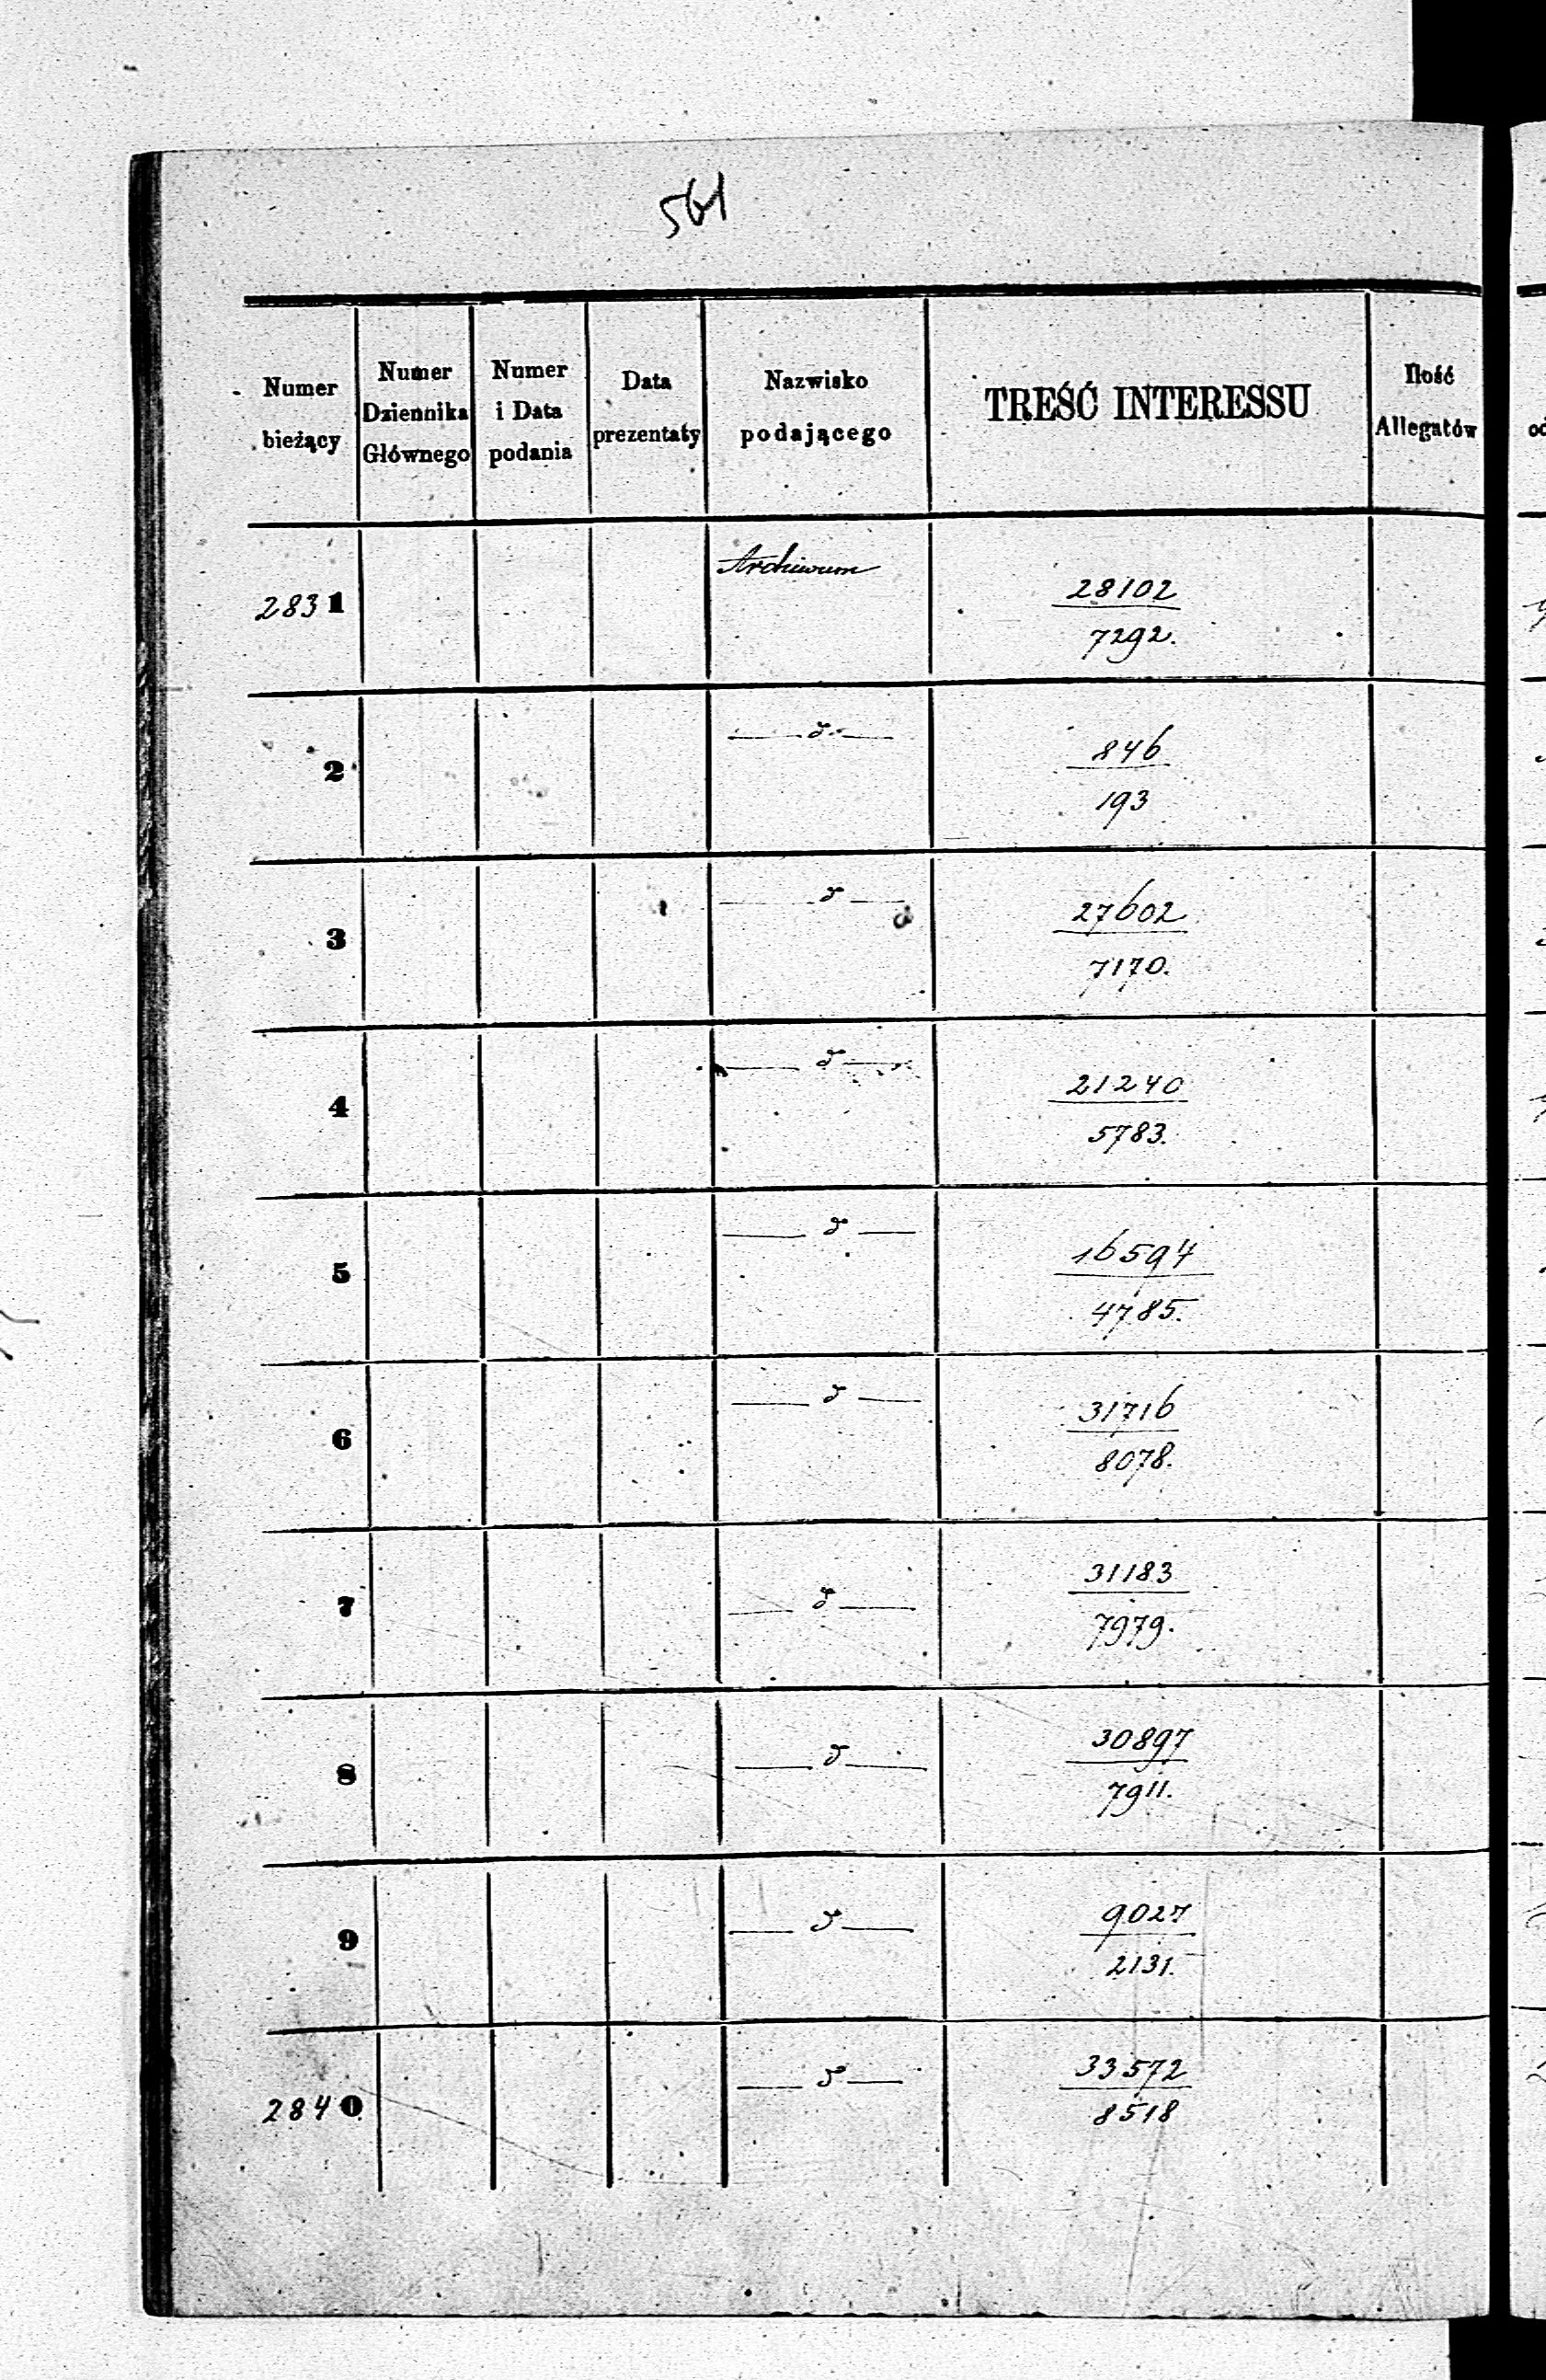 561
Numer bieżący
Numer Dziennika Głównego
Numer i Data podania
Data prezentaty
Nazwisko podającego
TREŚĆ INTERESSU
Ilość Allegatów
2831
Archiwum
28102
7292.
2
846
193
3
27602
7170.
4
21240
5783.
5
16594
4785.
6
31716
8078.
7
31183
7979.
8
30897
7911.
9
9027
2131.
2840
33572
8518